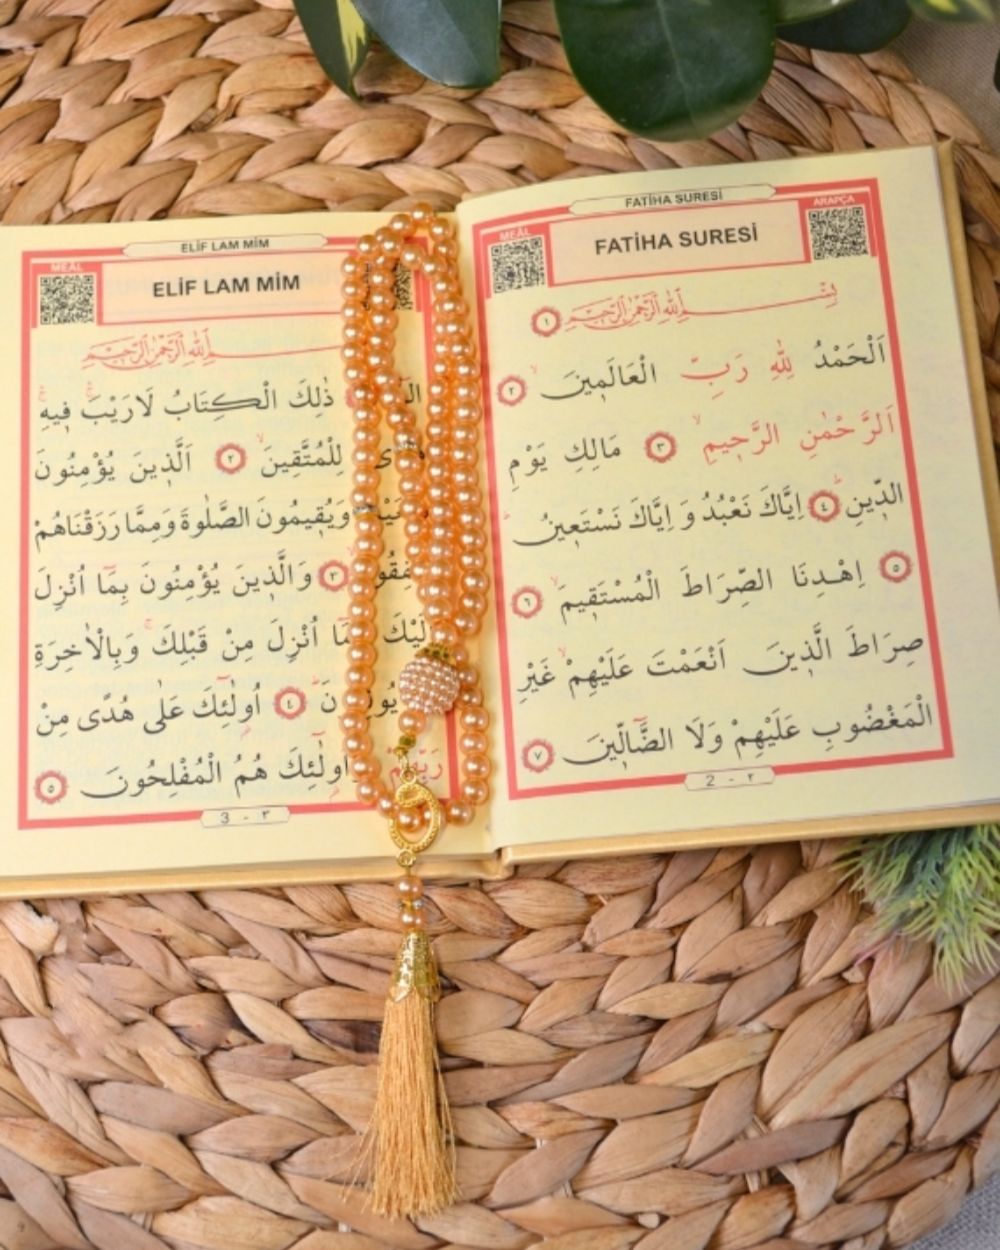 FATİHA SURESİ
MEÂL FATİHA SURESİ ARAPÇA
بِسْــــمِ اللّٰهِ الرَّحْمٰنِ الرَّحِيمِ ١
اَلْحَمْدُ لِلّٰهِ رَبِّ الْعَالَمٖينَ ٢
اَلرَّحْمٰنِ الرَّحٖيمِ ٣ مَالِكِ يَوْمِ
الدّٖينِ ٤ اِيَّاكَ نَعْبُدُ وَ اِيَّاكَ نَسْتَعٖينُ
٥ اِهْدِنَا الصِّرَاطَ الْمُسْتَقٖيمَ ٦
صِرَاطَ الَّذٖينَ اَنْعَمْتَ عَلَيْهِمْ غَيْرِ
الْمَغْضُوبِ عَلَيْهِمْ وَلَا الضَّٓالّٖينَ ٧
2 - ٢
ELİF LAM MİM
MEÂL ELİF LAM MİM
اللّٰهِ الرَّحْمٰنِ الرَّحِيمِ
ذٰلِكَ الْكِتَابُ لَارَيْبَ فٖيهِ
لِلْمُتَّقٖينَ ٢ اَلَّذٖينَ يُؤْمِنُونَ
وَيُقٖيمُونَ الصَّلٰوةَ وَمِمَّا رَزَقْنَاهُمْ
٣ وَالَّذٖينَ يُؤْمِنُونَ بِمَٓا اُنْزِلَ
اُنْزِلَ مِنْ قَبْلِكَ وَبِالْاٰخِرَةِ
٤ اُولٰٓئِكَ عَلٰى هُدًى مِنْ
اُولٰٓئِكَ هُمُ الْمُفْلِحُونَ ٥
3 - ٣